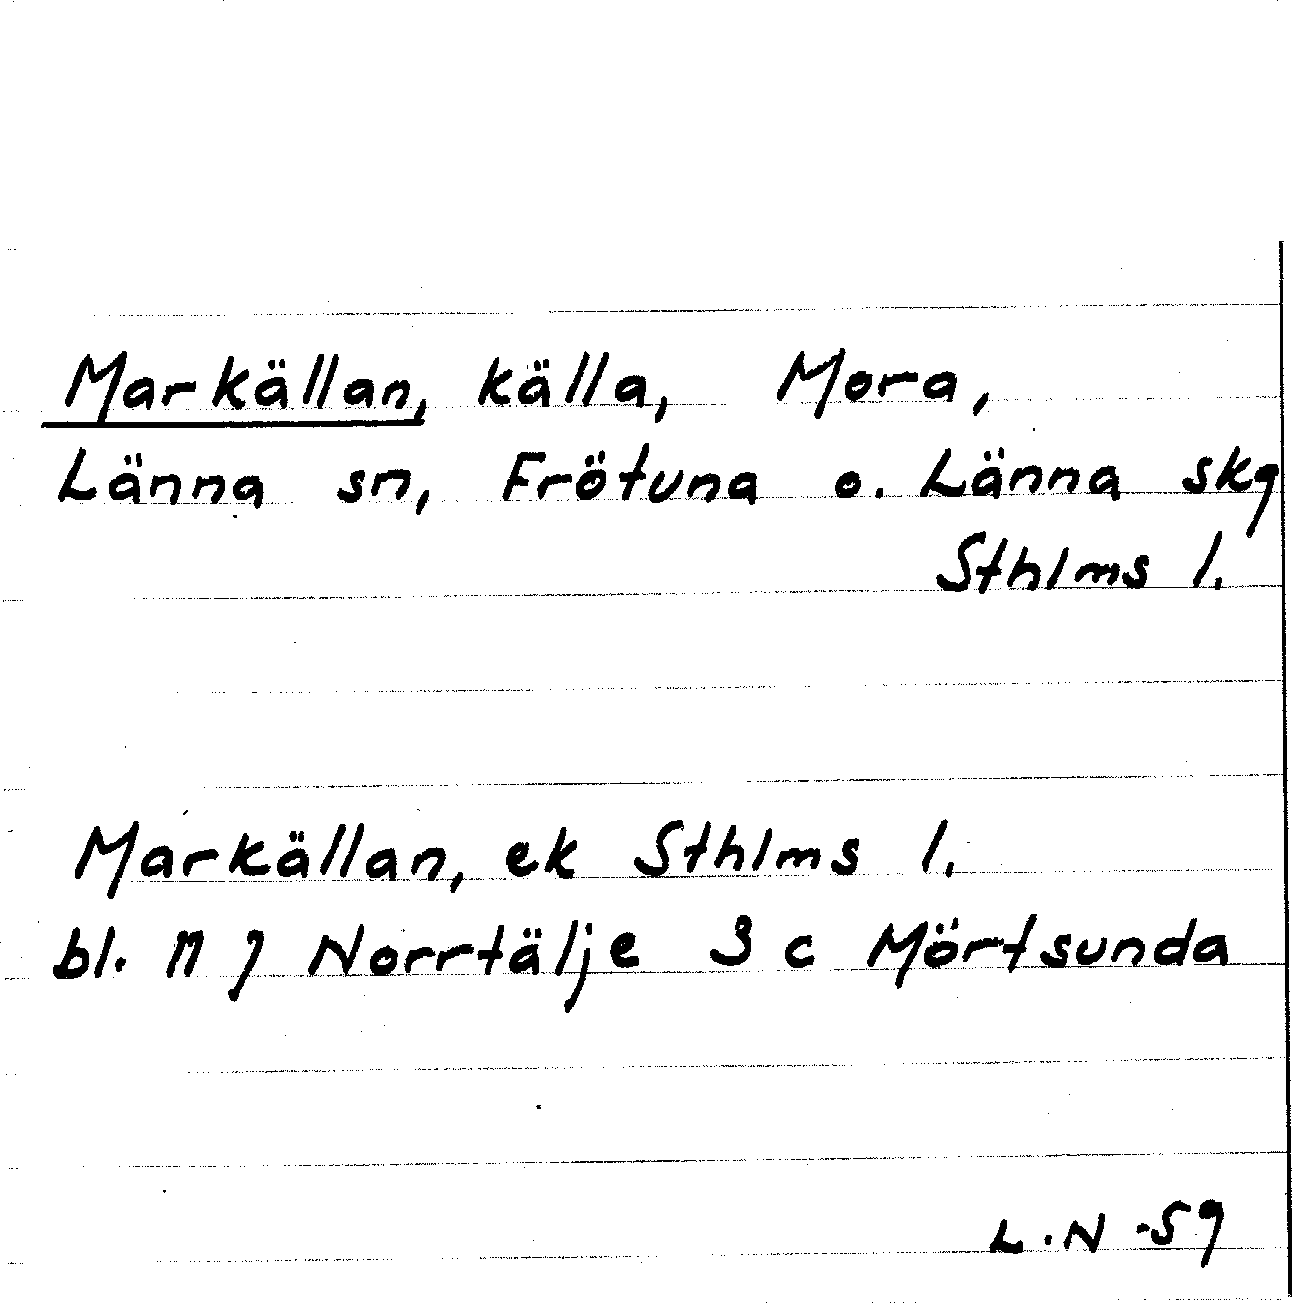 Markällan, källa, Mora,
Länna sn, Frötuna o. Länna skg
Sthlms l.
Markällan, ek Sthlms l.
bl. 11 J Norrtälje 3 c Mörtsunda
L.N -59